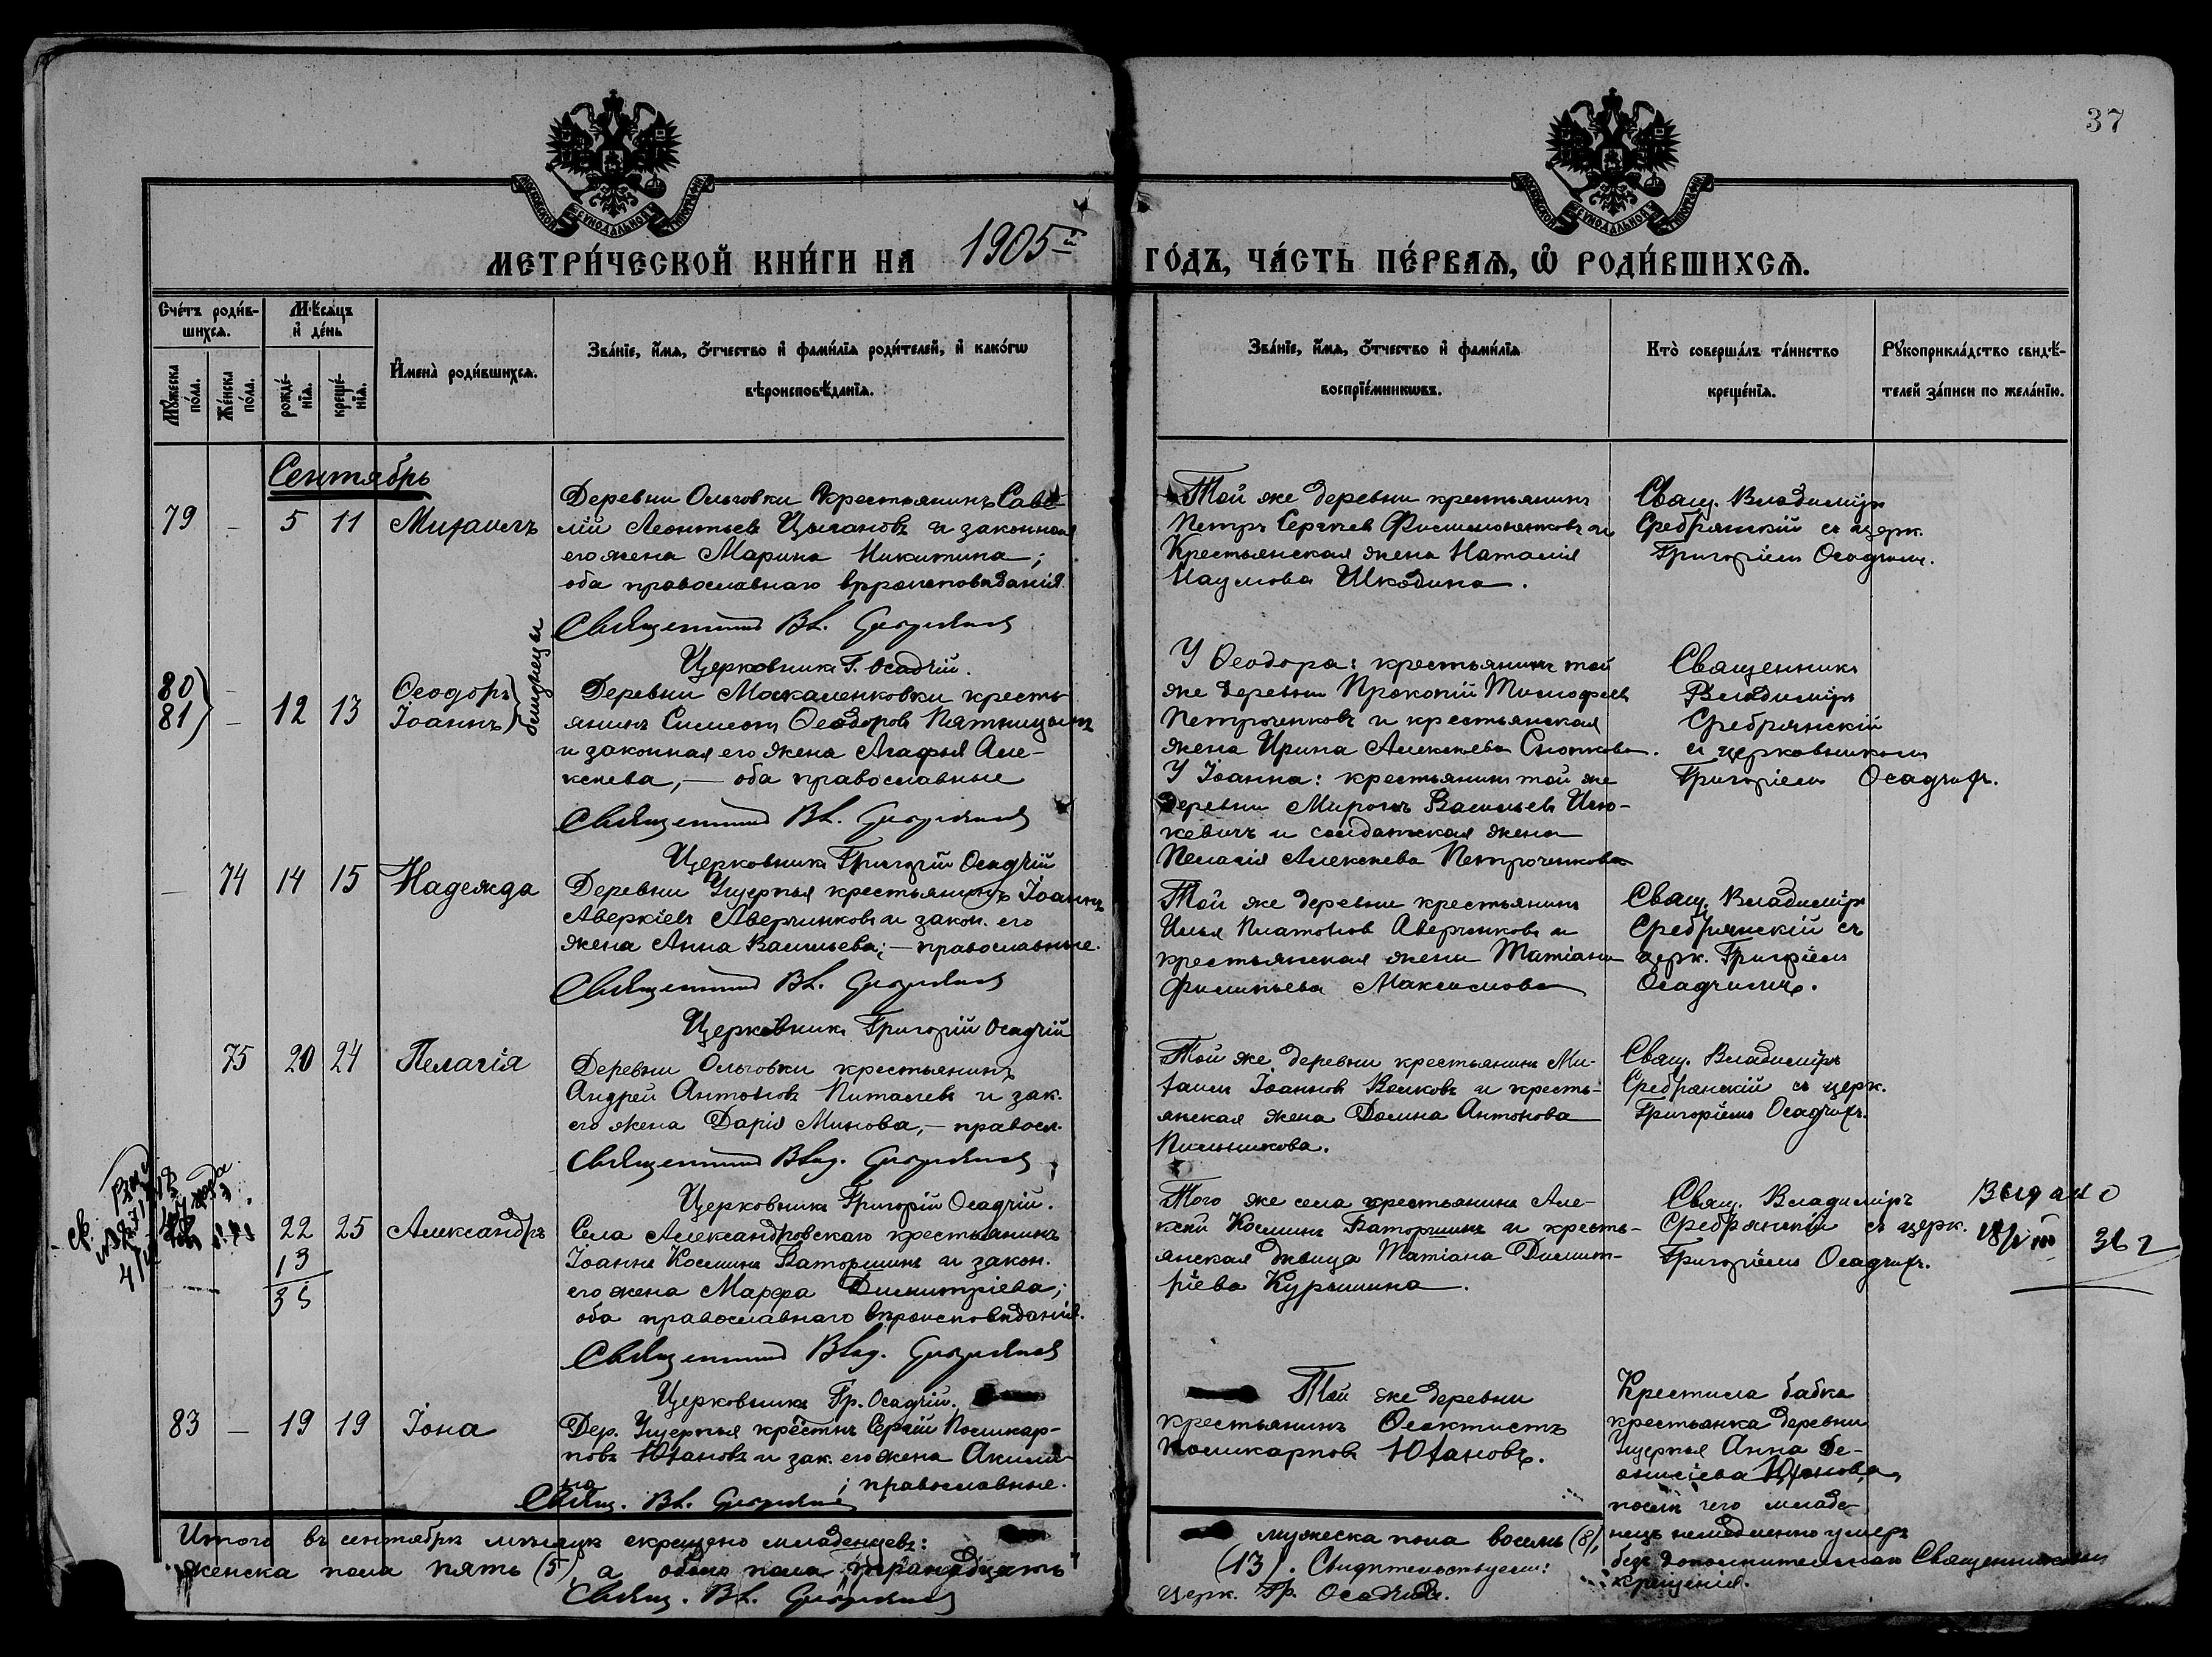 37
МОСКОВСКОЙ СѴНОДАЛЬНОЙ ТИПОГРАФІИ
МОСКОВСКОЙ СѴНОДАЛЬНОЙ ТИПОГРАФІИ
МЕТРИ́ЧЕСКОЙ КНИ́ГИ НА 1905й ГО́ДЪ, ЧА́СТЬ ПЕ́РВАѦ, Ѡ РОДИ́ВШИХСѦ.
Сче́тъ роди́в-
шихсѧ.
Мꙋжеска по́ла.
Же́нска по́ла.
Мѣ́сѧцъ
и҆ де́нь
рожде́-
нїѧ.
креще́-
нїѧ.
И҆мена̀ роди́вшихсѧ.
Зва́нїе, и҆́мѧ, ѻ҆́тчество и҆ фами́лїѧ роди́телей, и҆ како́гѡ
вѣроисповѣ́данїѧ.
Зва́нїе, и҆́мѧ, ѻ҆́тчество и҆ фами́лїѧ
воспрїе́мникѡвъ.
Кто̀ соверша́лъ та́инство
креще́нїѧ.
Рꙋкоприкла́дство свидѣ́-
телей за́писи по жела́нїю.
Сентябрь
79 – 5 11 Михаилъ
Деревни Ольговки крестьянинъ Саве-
лій Леонтьевъ Цыгановъ и законная
его жена Марина Никитина;
оба православнаго вѣроисповѣданія.
Священникъ Вл. Сребрянскій
Церковникъ Г. Осадчій.
Той же деревни крестьянинъ
Петръ Сергѣевъ Филимоненковъ и
Крестьянская жена Наталія
Наумова Шкодина.
Свящ. Владиміръ
Сребрянскій съ церк.
Григоріемъ Осадчимъ.
80
81 – 12 13 Ѳеодоръ
Іоаннъ
близнецы
Деревни Москаленковки кресть-
янинъ Симеонъ Ѳеодоровъ Пятницынъ
и законная его жена Агафья Але-
ксѣева, — оба православные
Священникъ Вл. Сребрянскій
Церковникъ Григорій Осадчій
У Ѳеодора: крестьянинъ той
же деревни Прокопій Тимоѳеевъ
Петроченковъ и крестьянская
жена Ирина Алексѣева
У Іоанна: крестьянинъ той же
деревни Миронъ Васильевъ
и солдатская жена
Пелагія Алексѣева Петроченкова
Священникъ
Владиміръ
Сребрянскій
съ церковникомъ
Григоріемъ Осадчимъ.
– 74 14 15 Надежда
Деревни Ущерпья крестьянинъ Іоаннъ
Аверкіевъ Аверчинковъ и закон. его
жена Анна Васильева; — православные.
Священникъ Вл. Сребрянскій
Церковникъ Григорій Осадчій
Той же деревни крестьянинъ
Илья Платоновъ Аверчинковъ и
крестьянская жена Татіана
Филипьева Максимова
Свящ. Владиміръ
Сребрянскій съ
церк. Григоріемъ
Осадчимъ.
75 20 24 Пелагія
Деревни Ольговки крестьянинъ
Андрей Антоновъ Питалевъ и зак.
его жена Дарія Минова, — правосл.
Священникъ Влад. Сребрянскій
Церковникъ Григорій Осадчій.
Той же деревни крестьянинъ Ми-
хаилъ Іоанновъ Волковъ и кресть-
янская жена Домна Антонова
Пильникова.
Свящ. Владиміръ
Сребрянскій съ церк.
Григоріемъ Осадчимъ.
22 25 Александръ
13
35
Села Александровскаго крестьянинъ
Іоаннъ Косминъ Баторшинъ и закон.
его жена Марфа Димитріева;
оба православнаго вѣроисповѣданія.
Священникъ Влад. Сребрянскій
Церковникъ Гр. Осадчій.
Того же села крестьянинъ Але-
ксѣй Косминъ Баторшинъ и кресть-
янская дѣвица Татіана Димит-
ріева Куршина.
Свящ. Владиміръ
Сребрянскій съ церк.
Григоріемъ Осадчимъ.
Выдано
362
83 – 19 19 Іона
Дер. Ущерпья крестнъ Сергій Поликар-
повъ Юхановъ и зак. его жена Акили-
на; православные.
Свящ. Вл. Сребрянскій
Той же деревни
крестьянинъ Ѳеоктистъ
Поликарповъ Юхановъ.
Крестила бабка
крестьянка деревни
Ущерпья Анна Де-
онисіева Юханова,
послѣ чего младе-
нецъ немедленно умеръ
безъ дополнительнаго Священникомъ
крещенія.
Итого въ сентябрѣ мѣсяцѣ скрещено младенцевъ: мужеска пола восемь (8),
женска пола пять (5), а обоего пола тринадцать (13). Свидѣтельствуемъ:
Свящ. Вл. Сребрянскій
Церк. Гр. Осадчій.